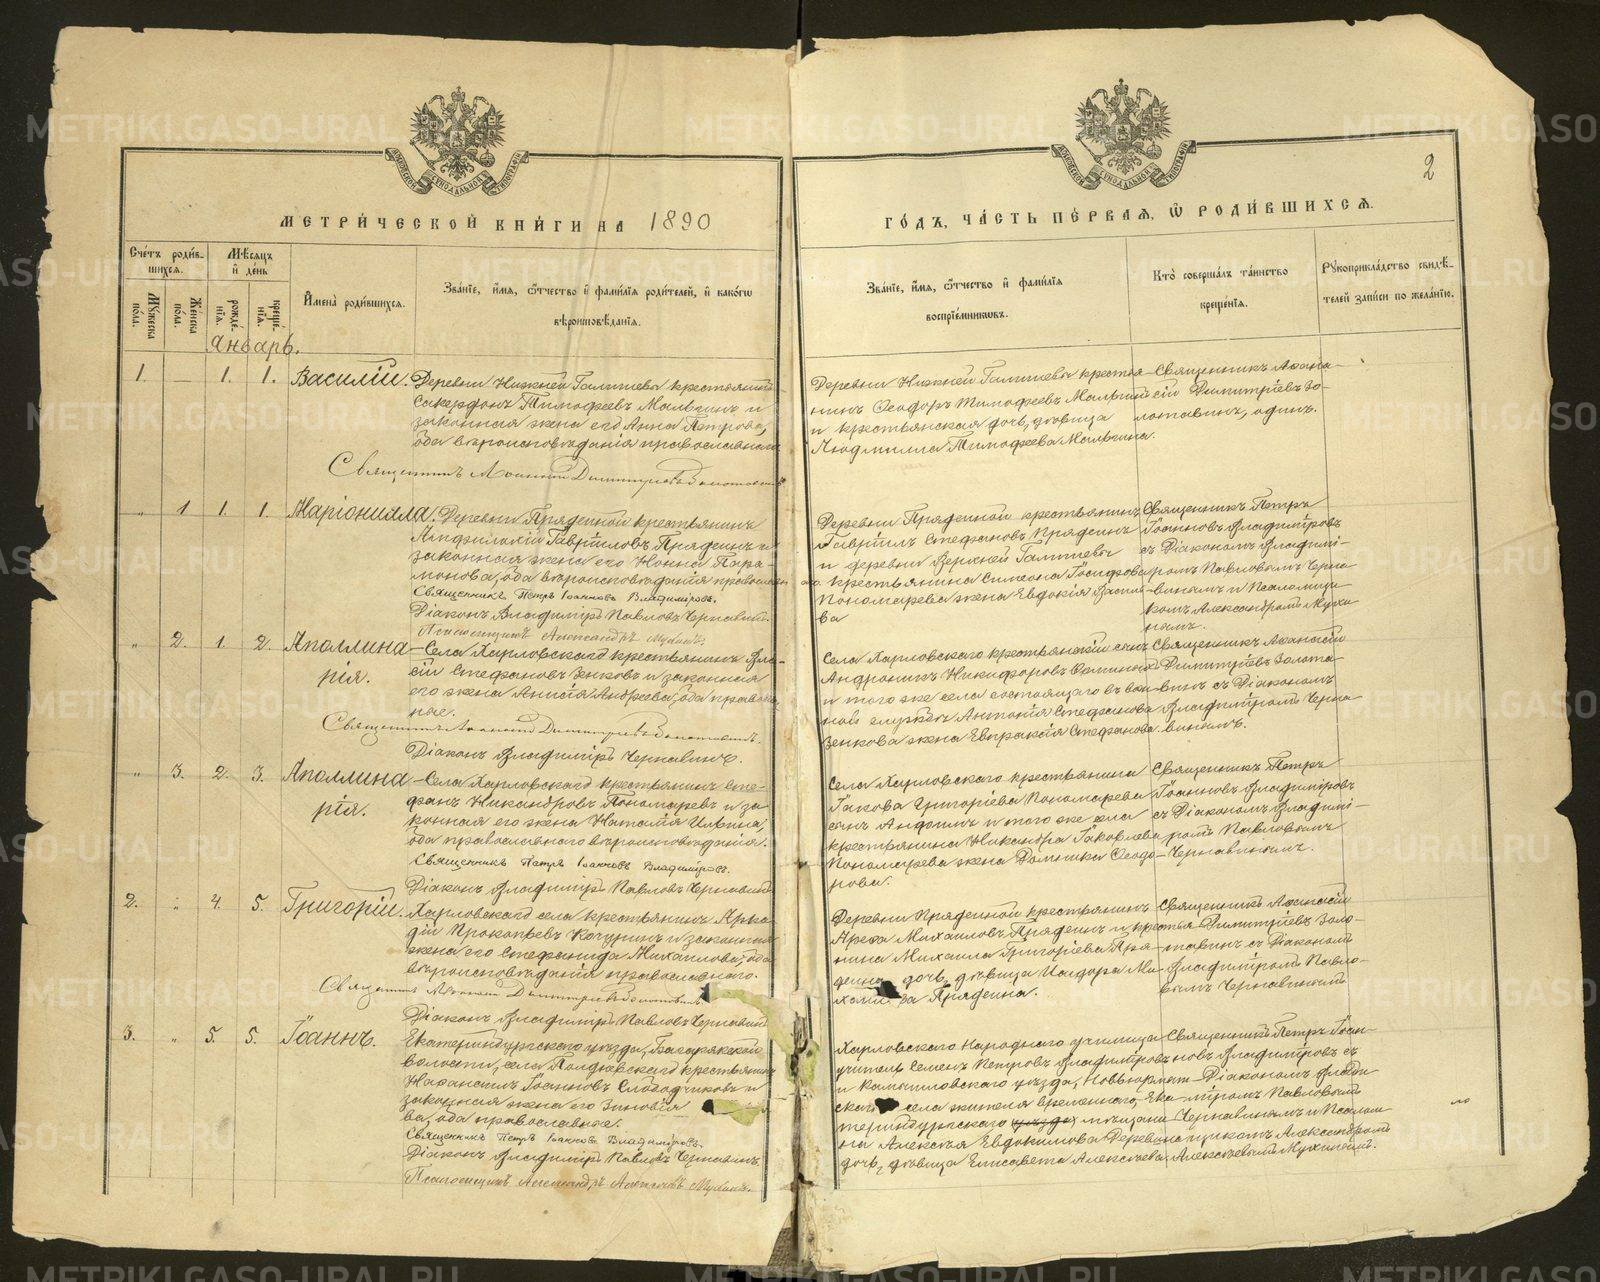 МЕТРИ́ЧЕСКОЙ КНИ́ГИ НА 1890
ГО́ДЪ, ЧА́СТЬ ПЕ́РВАЯ, Ѿ РОДИ́ВШИХСЯ.
2
Сче́тъ роди́в-
шихся.
Мѣсяцъ
и де́нь
Му́жеска
по́ла.
Же́нска
по́ла.
рожде́-
нія.
креще́-
нія.
Имена̀ роди́вшихся.
Зва́ніе, и́мя, о́тчество и фами́лія роди́телей, и како́гѡ
вѣроисповѣ́данія.
Зва́ніе, и́мя, о́тчество и фами́лія
воспріе́мниковъ.
Кто̀ соверша́лъ та́инство
креще́нія.
Рукоприкла́дство свидѣ́-
телей за́писи по жела́нію.
Январь.
1. — 1. 1. Василій.
Деревни Нижней Галишевы крестьянинъ
Сакердонъ Тимофеевъ Мальгинъ и
законная жена его Анна Петрова,
оба вѣроисповѣданія православнаго
Священникъ Афанасій Димитріевъ Золотавинъ
Деревни Нижней Галишевы крестья-
нинъ Ѳеодоръ Тимофеевъ Мальгинъ
и крестьянская дочь, дѣвица
Людмилла Тимофеева Мальгина.
Священникъ Афана-
сій Димитріевъ Зо-
лотавинъ, одинъ.
„ 1 1. 1. Маріонилла.
Деревни Пряденной крестьянинъ
Гавріиловъ Пряденъ и
законная жена его Нонна Пара-
монова, оба вѣроисповѣданія православнаго
Священникъ Петръ Іоанновъ Владиміровъ.
Діаконъ Владиміръ Павловъ Чернавинъ.
Псаломщикъ Александръ Мухинъ
Деревни Пряденной крестьянинъ
Гавріилъ Стефановъ Пряденъ
и деревни Верхней Галишевы
крестьянина Симеона Іосифова
Пономарева жена Евдокія Василье-
ва
Священникъ Петръ
Іоанновъ Владиміровъ
съ Діакономъ Владимі-
ромъ Павловымъ Черна-
винымъ и Псаломщи-
комъ Александромъ Мухи-
нымъ.
„ 2. 1. 2. Аполлина-
рія.
Села Харловскаго крестьянинъ Вла-
сій Стефановъ Зенковъ и законная
его жена Анисія Андреева, оба православ-
ные.
Священникъ Афанасій Димитріевъ Золотавинъ.
Діаконъ Владиміръ Чернавинъ.
Села Харловскаго крестьянскій сынъ
Андроникъ Никифоровъ
и того же села состоящаго въ воен-
ной службѣ Антонія Стефанова
Зенкова жена Евпраксія Стефанова
Священникъ Афанасій
Димитріевъ Золота-
винъ съ Діакономъ
Владиміромъ Черна-
винымъ.
„ 3. 2. 3. Аполлина-
рія.
Села Харловскаго крестьянинъ Сте-
фанъ Никандровъ Пономаревъ и за-
конная его жена Наталія Ильина,
оба православнаго вѣроисповѣданія.
Священникъ Петръ Іоанновъ Владиміровъ.
Діаконъ Владиміръ Павловъ Чернавинъ
Села Харловскаго крестьянина
Іакова Григоріева Пономарева
сынъ и того же села
крестьянина Никандра Іаковлева
Пономарева жена Домника Ѳеодо-
рова.
Священникъ Петръ
Іоанновъ Владиміровъ
съ Діакономъ Владимі-
ромъ Павловымъ
Чернавинымъ.
2. „ 4. 5. Григорій.
Харловскаго села крестьянинъ Арка-
дій Прокопьевъ Кочуринъ и законная
жена его Стефанида Михаилова, оба
вѣроисповѣданія православнаго.
Священникъ Афанасій Димитріевъ Золотавинъ.
Діаконъ Владиміръ Павловъ Чернавинъ
Деревни Пряденной крестьянинъ
Ареѳа Михаиловъ Пряденъ и кресть-
янина Михаила Григоріева Пря-
деина дочь, дѣвица Исидора Ми-
хаилова Прядеина.
Священникъ Афанасій
Димитріевъ Золо-
тавинъ съ Діакономъ
Владиміромъ Павло-
вымъ Чернавинымъ
3. „ 5. 5. Іоаннъ.
Екатеринбургскаго уѣзда, Багарякской
волости, села Полдневскаго крестьянинъ
Наѳанаилъ Іоанновъ Слободчиковъ и
законная жена его Зиновія
ва, оба православные.
Священникъ Петръ Іоанновъ Владиміровъ.
Діаконъ Владиміръ Павловъ Чернавинъ.
Псаломщикъ Александръ Алексѣевъ Мухинъ.
Харловскаго Народнаго училища
учитель Семенъ Петровъ Владиміровъ
и Камышловскаго уѣзда, Новьюрмыт-
скаго села жителя временнаго, Ека-
теринбургскаго уѣзда, мѣщани-
на Алексѣя Евдокимова
дочь, дѣвица Елисавета Алексѣева
Священникъ Петръ Іоан-
новъ Владиміровъ съ
Діакономъ Влади-
міромъ Павловымъ
Чернавинымъ и Псалом-
щикомъ Александромъ
Алексѣевымъ Мухинымъ.
METRIKI.GASO-URAL.RU